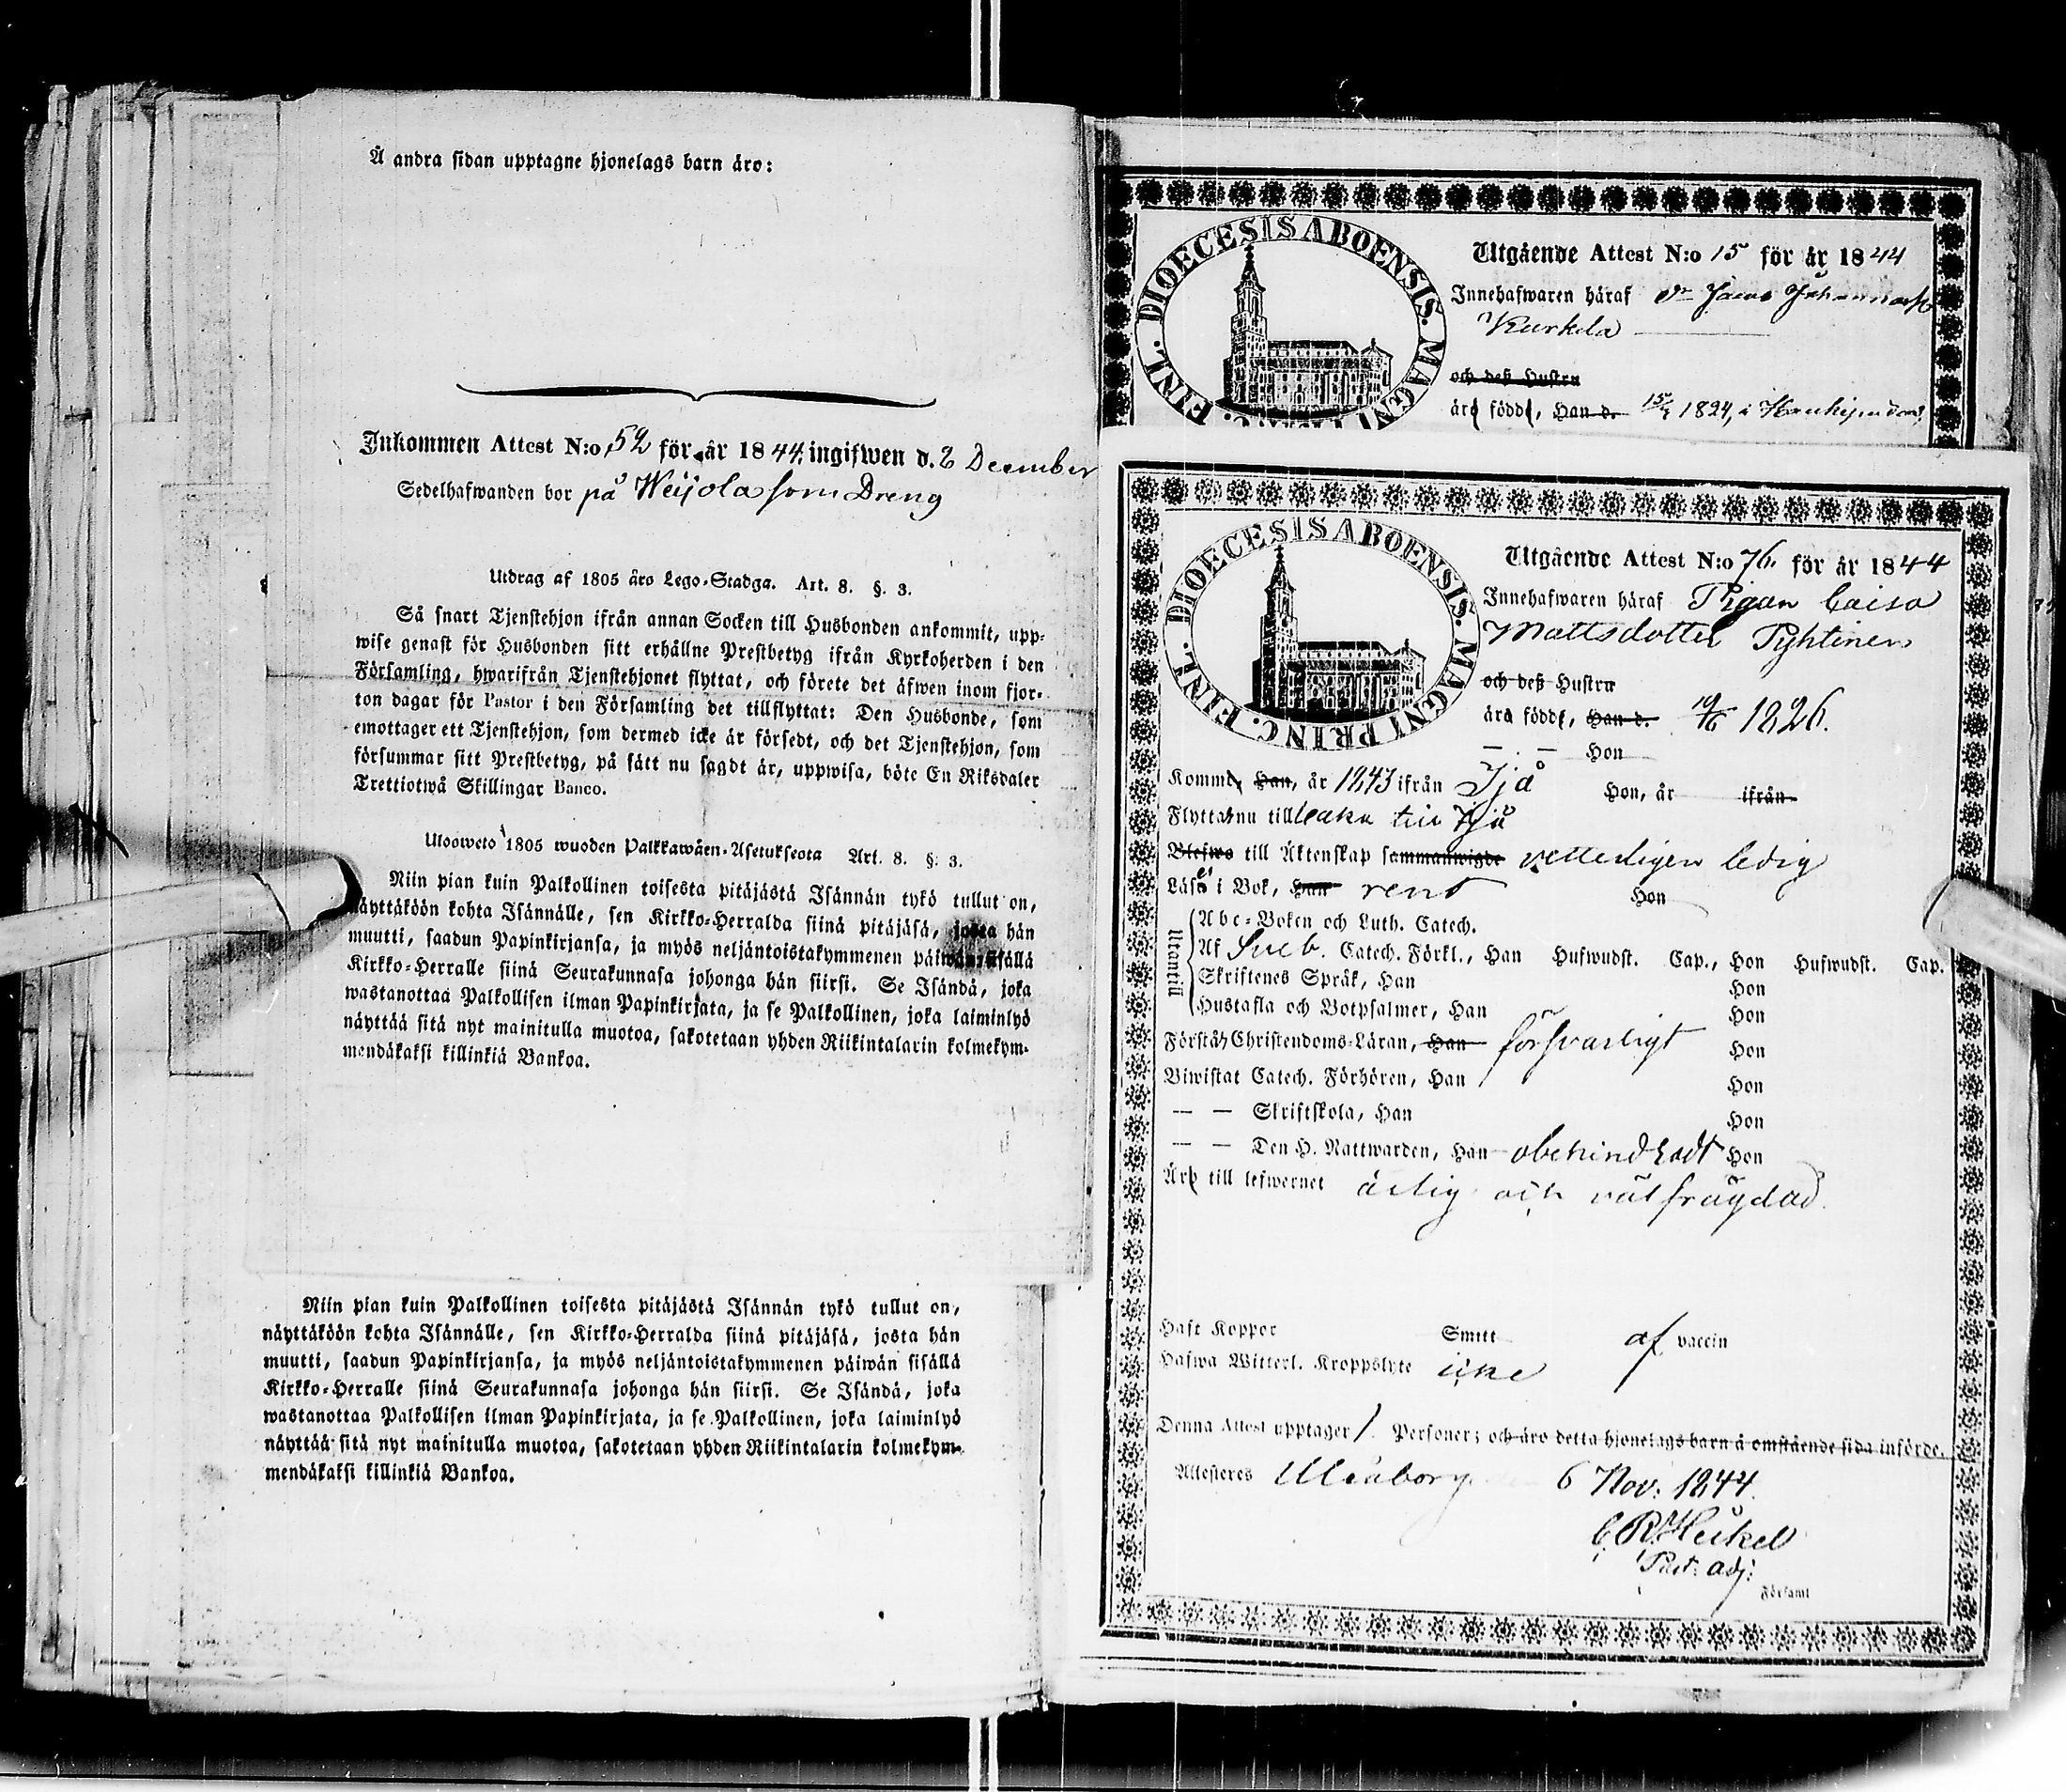 Å andra sidan upptagne hjonelags barn äro:
Inkommen Attest N:o 52 för år 1844, ingifwen d. 2 December
Sedelhafwanden bor på Weijola som Dreng
Utdrag af 1805 års Lego-Stadga. Art. 8. §. 3.
Så snart Tjenstehjon ifrån annan Socken till Husbonden ankommit, upp-
wise genast för Husbonden sitt erhållne Prestbetyg ifrån Kyrkoherden i den
Församling, hwarifrån Tjenstehjonet flyttat, och förete det äfwen inom fjor-
ton dagar för Pastor i den Församling det tillflyttat: Den Husbonde, som
emottager ett Tjenstehjon, som dermed icke är försedt, och det Tjenstehjon, som
försummar sitt Prestbetyg, på sätt nu sagdt är, uppwisa, böte En Riksdaler
Trettiotwå Skillingar Banco.
Ulosweto 1805 wuoden Palkkawäen-Asetuksesta Art. 8. §. 3.
Niin pian kuin Palkollinen toisesta pitäjästä Isännän tykö tullut on,
näyttäköön kohta Isännälle, sen Kirkko-Herralda siinä pitäjäsä, josta hän
muutti, saadun Papinkirjansa, ja myös neljäntoistakymmenen päiwän sisällä
Kirkko-Herralle siinä Seurakunnasa johonga hän siirsi. Se Isändä, joka
wastanottaa Palkollisen ilman Papinkirjata, ja se Palkollinen, joka laiminlyö
näyttää sitä nyt mainitulla muotoa, sakotetaan yhden Riikintalarin kolmekym-
mendäkaksi killinkiä Bankoa.
Niin pian kuin Palkollinen toisesta pitäjästä Isännän tykö tullut on,
näyttäköön kohta Isännälle, sen Kirkko-Herralda siinä pitäjäsä, josta hän
muutti, saadun Papinkirjansa, ja myös neljäntoistakymmenen päiwän sisällä
Kirkko-Herralle siinä Seurakunnasa johonga hän siirsi. Se Isändä, joka
wastanottaa Palkollisen ilman Papinkirjata, ja se Palkollinen, joka laiminlyö
näyttää sitä nyt mainitulla muotoa, sakotetaan yhden Riikintalarin kolmekym-
mendäkaksi killinkiä Bankoa.
DIOECESIS ABOENSIS. MAGNI PRINC. FINL.
Utgående Attest N:o 15 för år 1844
Innehafwaren häraf Dr Jacob Johansson
Kurkela
och deß Hustru
äro födde, Han d. 15/4 1824, i Haukipudas
DIOECESIS ABOENSIS. MAGNI PRINC. FINL.
Utgående Attest N:o 76. för år 1844
Innehafwaren häraf Pigan Caisa
Mattsdotter Pyhtinen
och deß Hustru
äro födde, Han d. 19/6 1826.
— . — Hon
Komme, Han, år 1843 ifrån Ijå Hon, år ifrån
Flytta nu till baka till Ijå
Blefwo till Äktenskap sammanwigde vetterligen ledig
Läsa i Bok, Han rent Hon
Utantill
Abc-Boken och Luth. Catech.
Af Sveb. Catech. Förkl., Han Hufwudst. Cap., Hon Hufwudst. Cap.
Skriftenes Språk, Han Hon
Hustafla och Botpsalmer, Han Hon
Förstå Christendoms-Läran, Han försvarligt Hon
Biwistat Catech. Förhören, Han Hon
— — Skriftskola, Han Hon
— — Den H. Nattwarden, Han obehindradt Hon
Äro till lefwernet ärlig och välfrägdad.
Haft Koppor Smitt af vaccin
Hafwa Witterl. Kroppslyte icke
Denna Attest upptager 1. Personer; och äro detta hjonelags barn å omstående sida införde.
Attesteres Uleåborg 6 Nov: 1844.
C R Heikel
Past: adj:
Församl